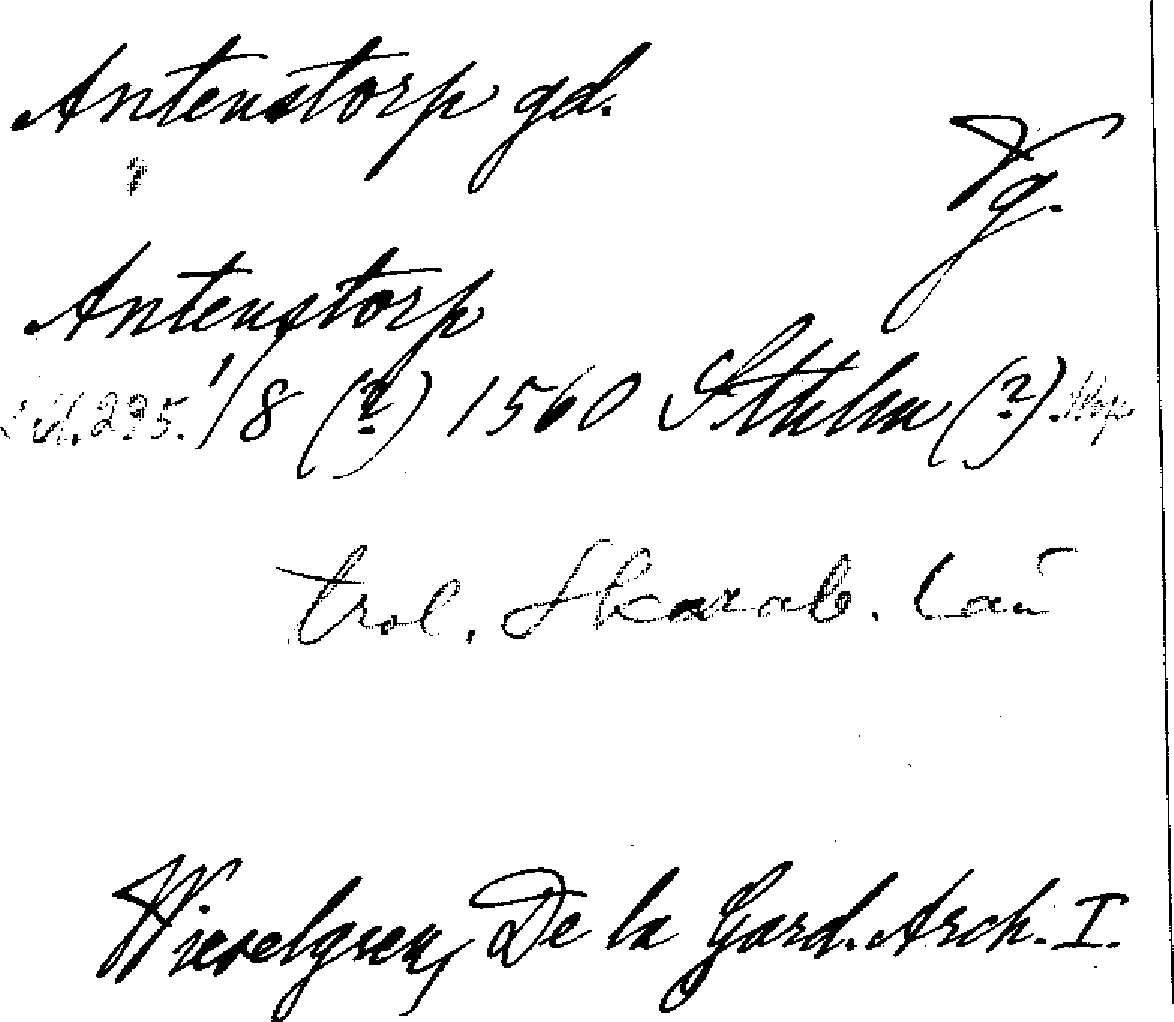 Antenstorp gd.
Vg.
?
Antenstorp
s. 225. 1/8 (?) 1560 Sthlm (?)
trol. Skarab. län
Wieselgren, De la Gard. Arch. I.